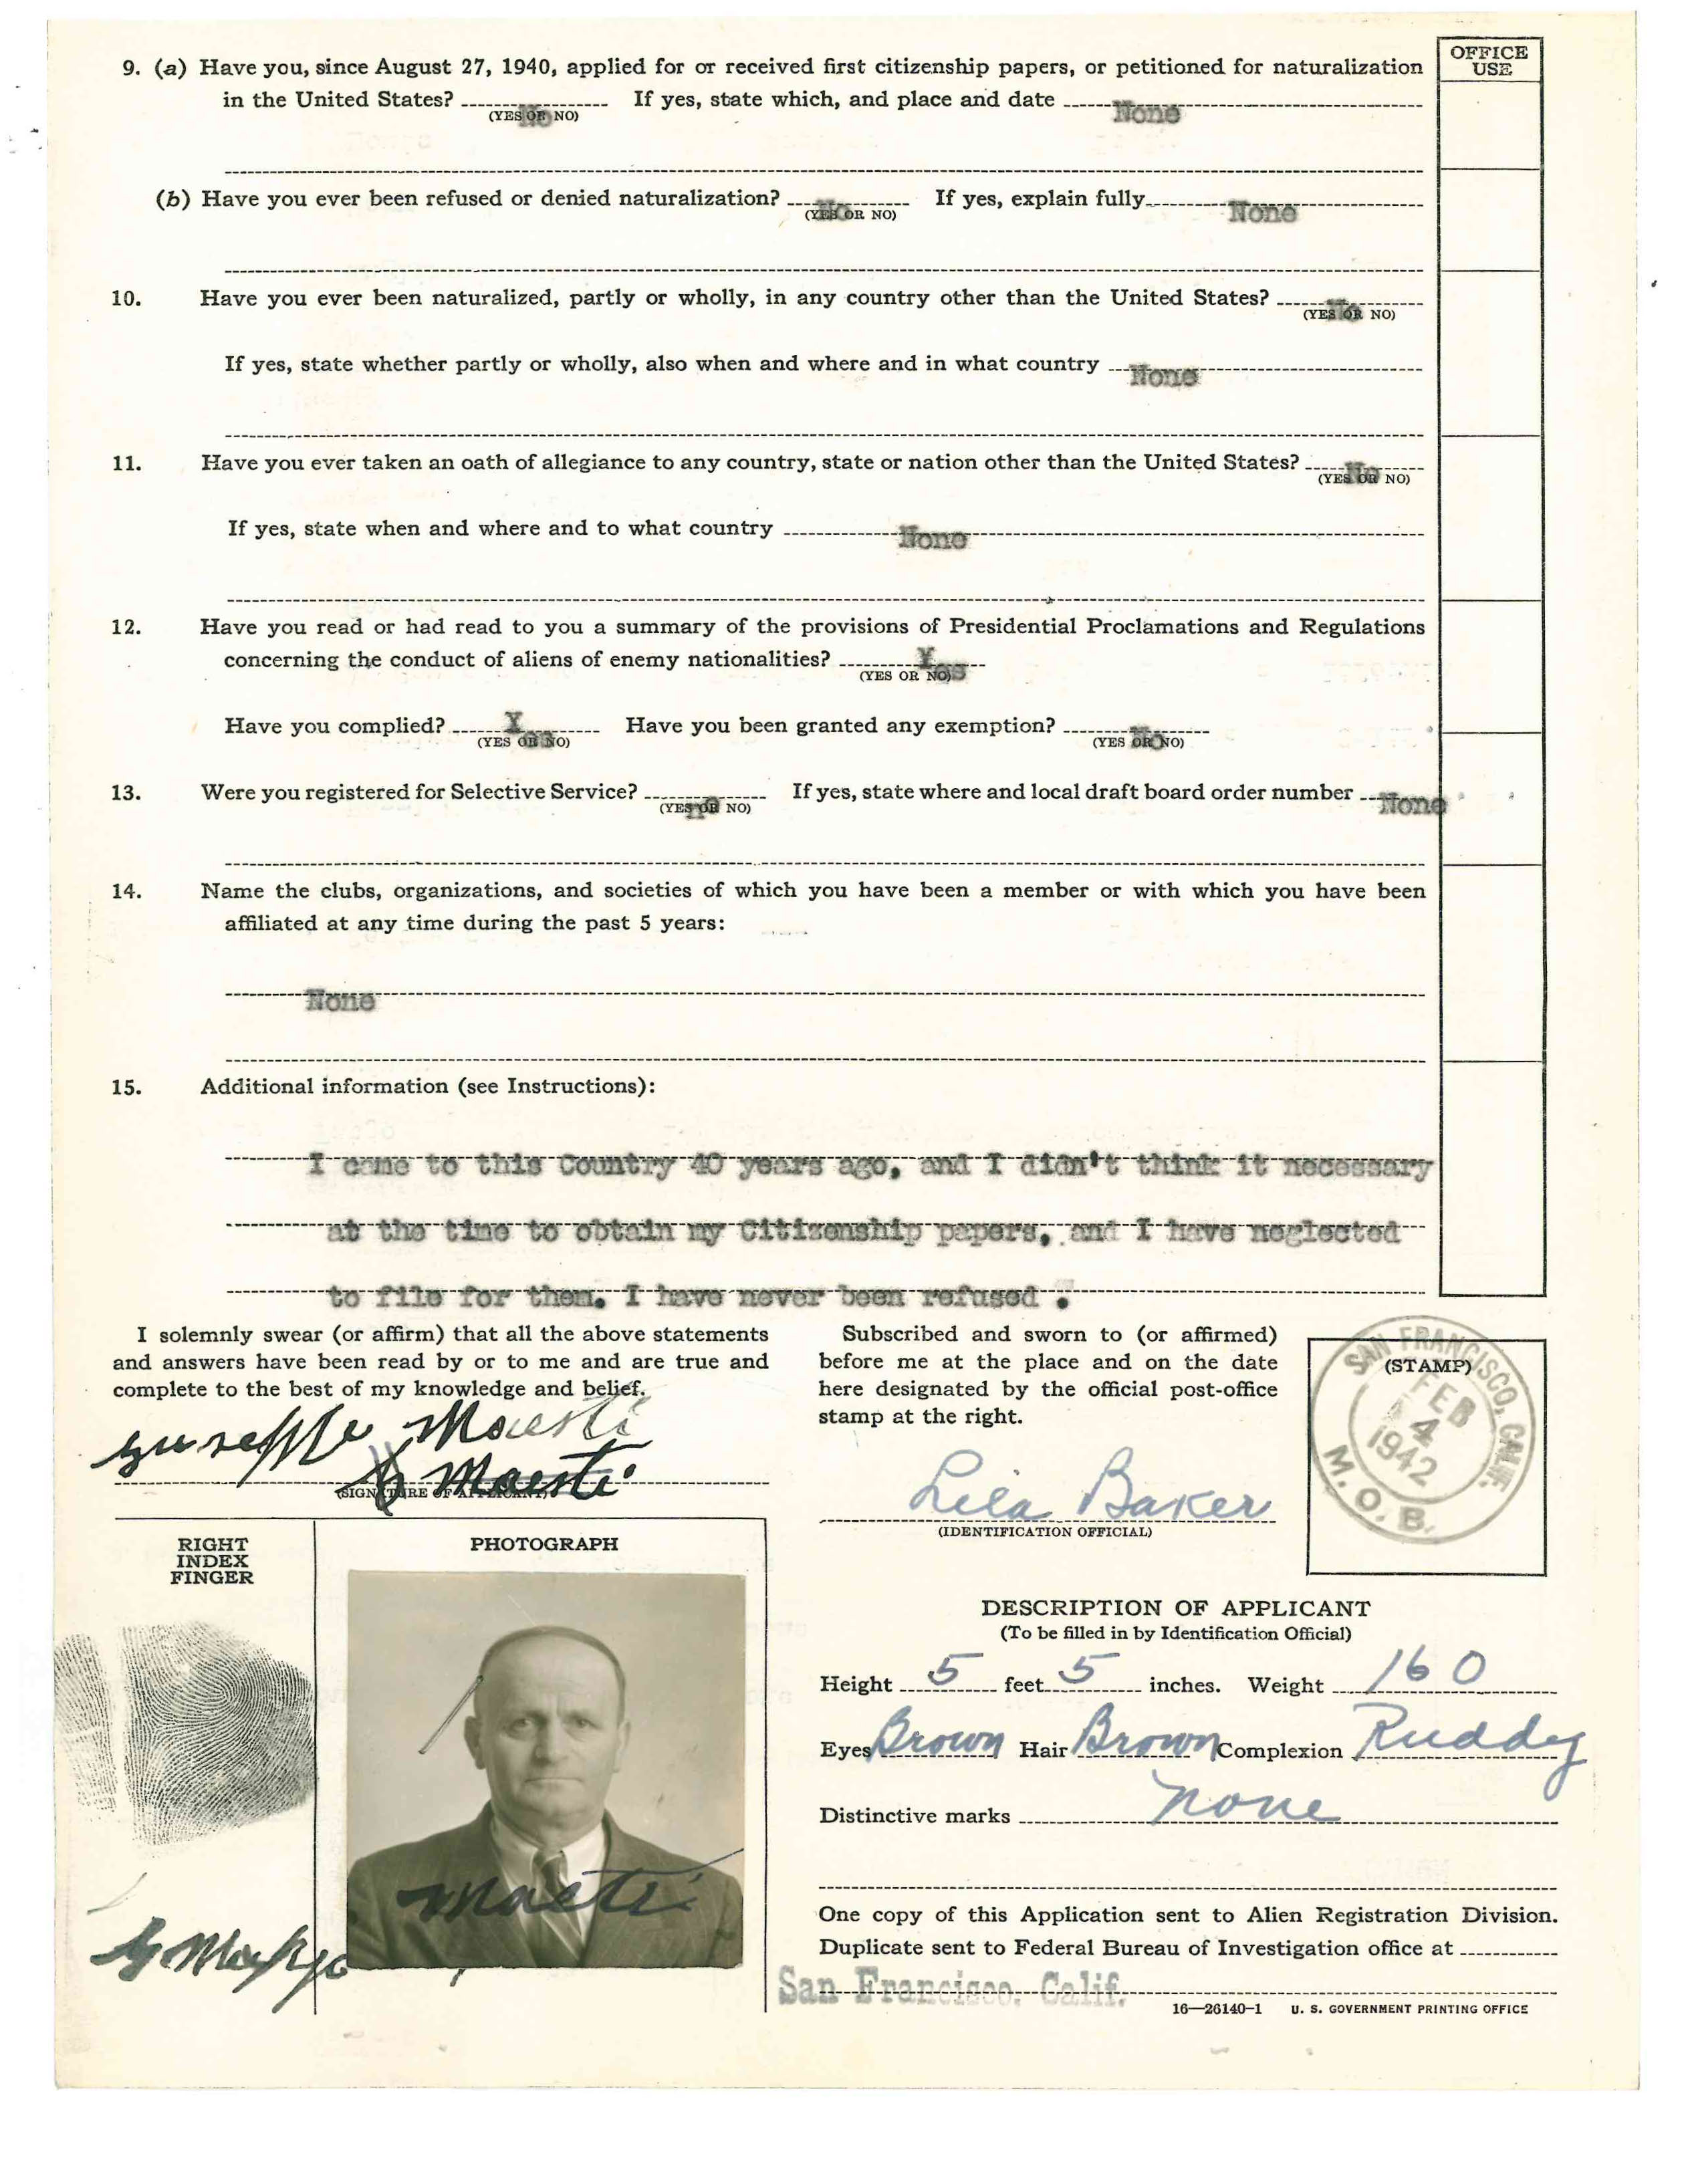 OFFICE
USE
9. (a) Have you, since August 27, 1940, applied for or received first citizenship papers, or petitioned for naturalization
in the United States? No If yes, state which, and place and date None
(YES OR NO)
(b) Have you ever been refused or denied naturalization? No If yes, explain fully None
(YES OR NO)
10. Have you ever been naturalized, partly or wholly, in any country other than the United States? No
(YES OR NO)
If yes, state whether partly or wholly, also when and where and in what country None
11. Have you ever taken an oath of allegiance to any country, state or nation other than the United States? No
(YES OR NO)
If yes, state when and where and to what country None
12. Have you read or had read to you a summary of the provisions of Presidential Proclamations and Regulations
concerning the conduct of aliens of enemy nationalities? Yes
(YES OR NO)
Have you complied? Have you been granted any exemption? No
(YES OR NO) (YES OR NO)
13. Were you registered for Selective Service? No If yes, state where and local draft board order number None
(YES OR NO)
14. Name the clubs, organizations, and societies of which you have been a member or with which you have been
affiliated at any time during the past 5 years:
None
15. Additional information (see Instructions):
I came to this Country 40 years ago, and I didn't think it necessary
at the time to obtain my Citizenship papers, and I have neglected
to file for them. I have never been refused .
I solemnly swear (or affirm) that all the above statements
and answers have been read by or to me and are true and
complete to the best of my knowledge and belief.
Maesti
G Maesti
(SIGNATURE OF APPLICANT)
Subscribed and sworn to (or affirmed)
before me at the place and on the date
here designated by the official post-office
stamp at the right.
Lila Baker
(IDENTIFICATION OFFICIAL)
(STAMP)
SAN FRANCISCO, CALIF.
FEB
4
1942
M. O. B.
RIGHT
INDEX
FINGER
PHOTOGRAPH
DESCRIPTION OF APPLICANT
(To be filled in by Identification Official)
Height 5 feet 5 inches. Weight 160
Eyes Brown Hair Brown Complexion Ruddy
Distinctive marks none
One copy of this Application sent to Alien Registration Division.
Duplicate sent to Federal Bureau of Investigation office at
San Francisco, Calif.
16—26140-1 U. S. GOVERNMENT PRINTING OFFICE